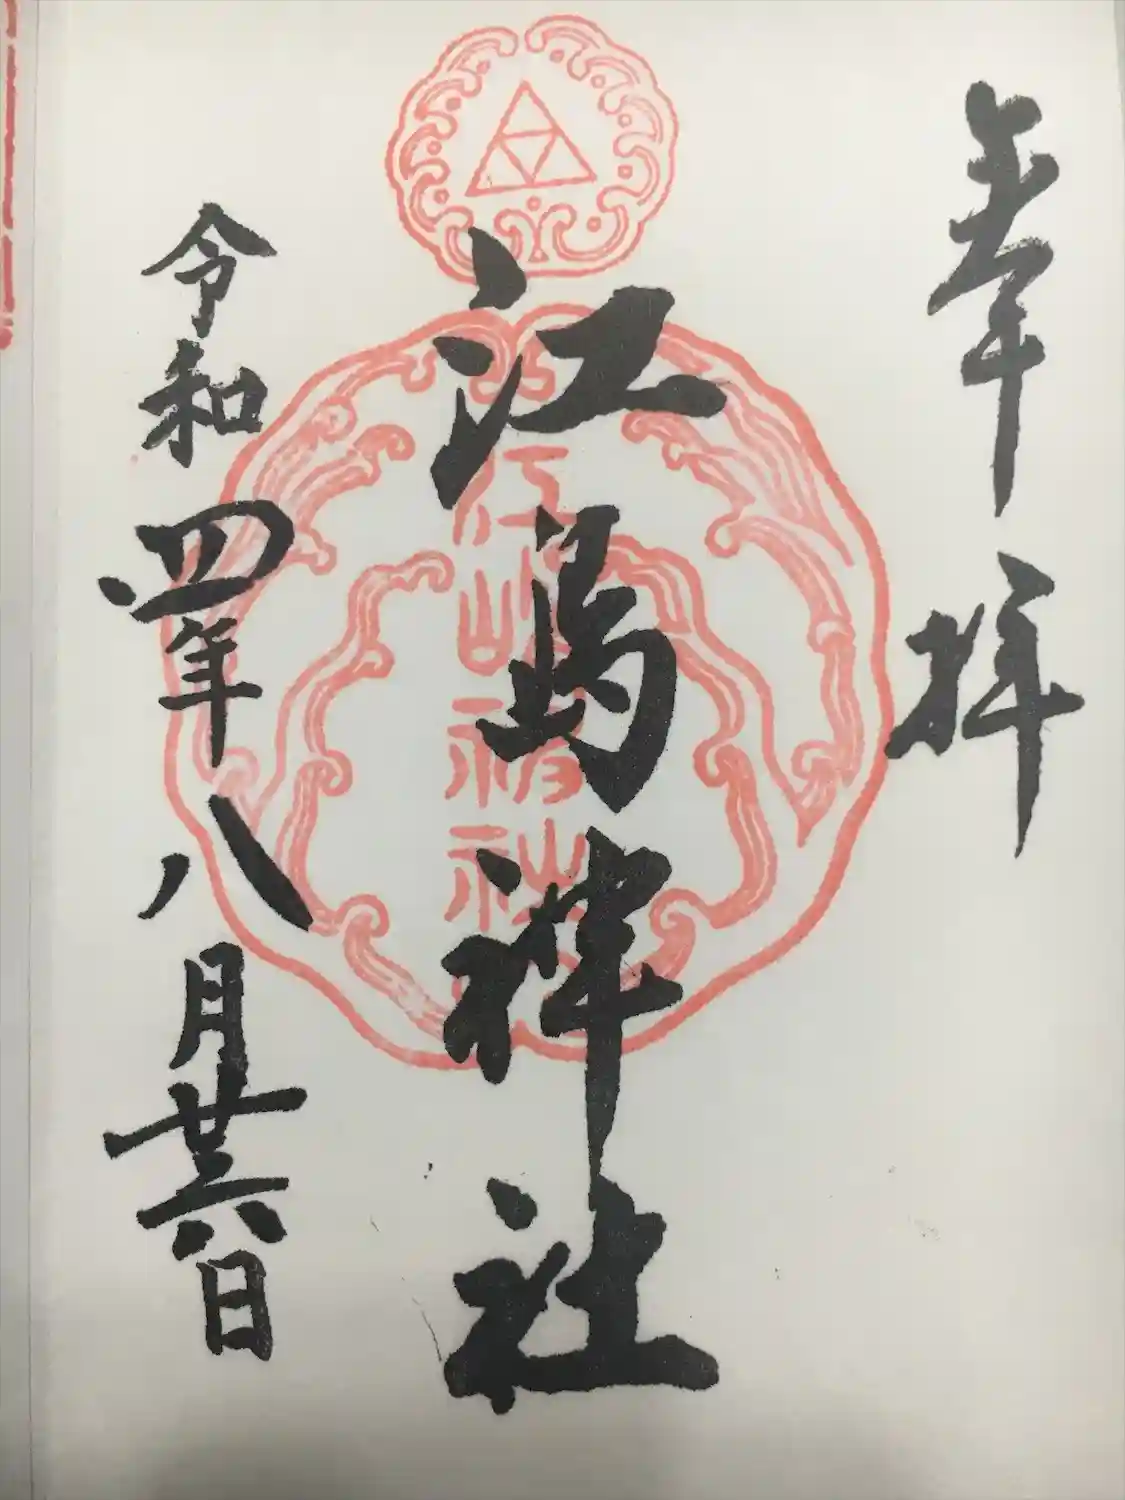 奉拝
江島神社
江嶋神社
令和四年八月廿六日